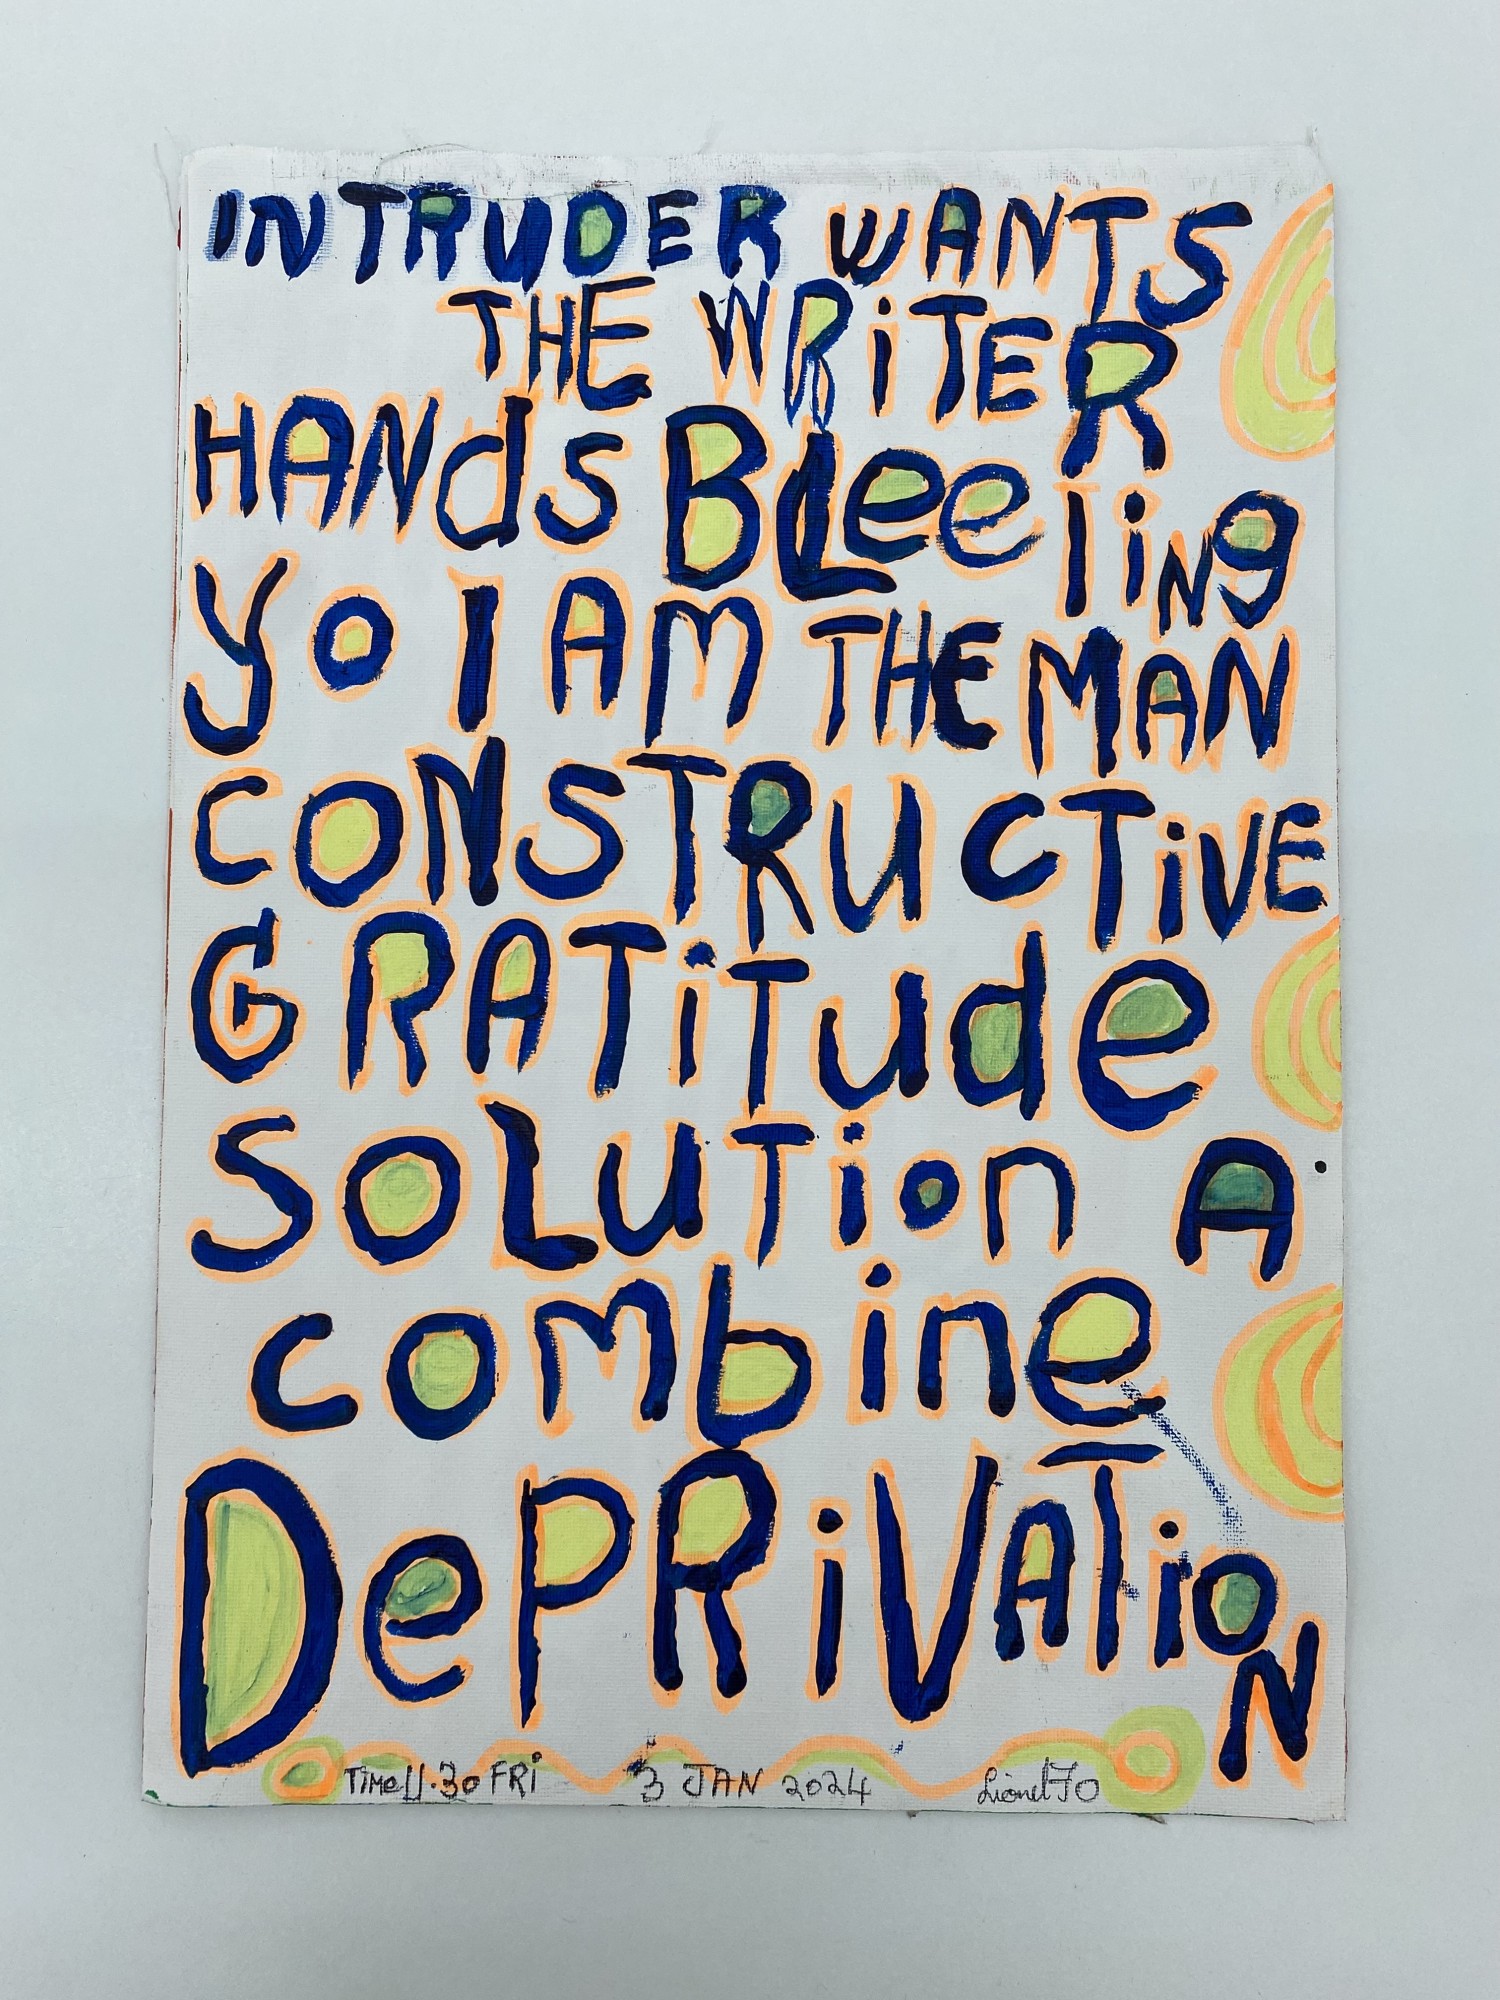 INTRUDER WANTS
THE WRiTER
HANds BLeeliNg
yo I AM THE MAN
CONSTRUCTiVE
GRATiTude
SOLUTion A
combine
DePRiVATioN
TIMe 11.30 FRi 3 JAN 2024 Lionel JO